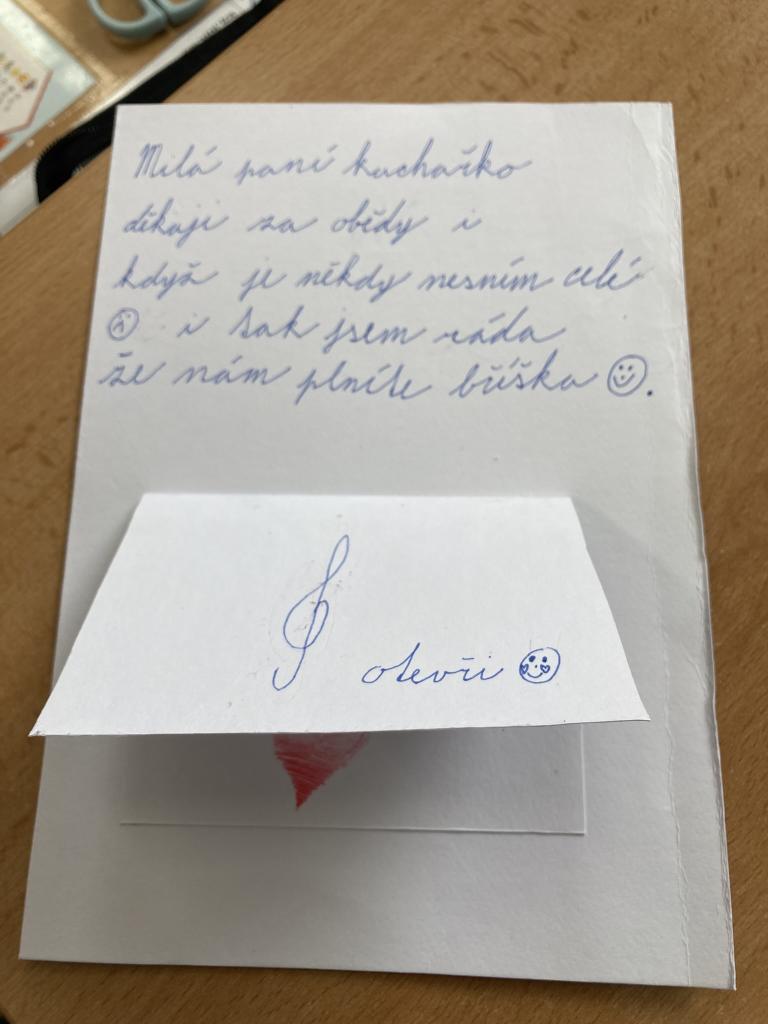 Milá paní kuchařko
děkuji za obědy i
když je někdy nesním celé
☹ i tak jsem ráda
že nám plníte bříška ☺.
otevři ☺